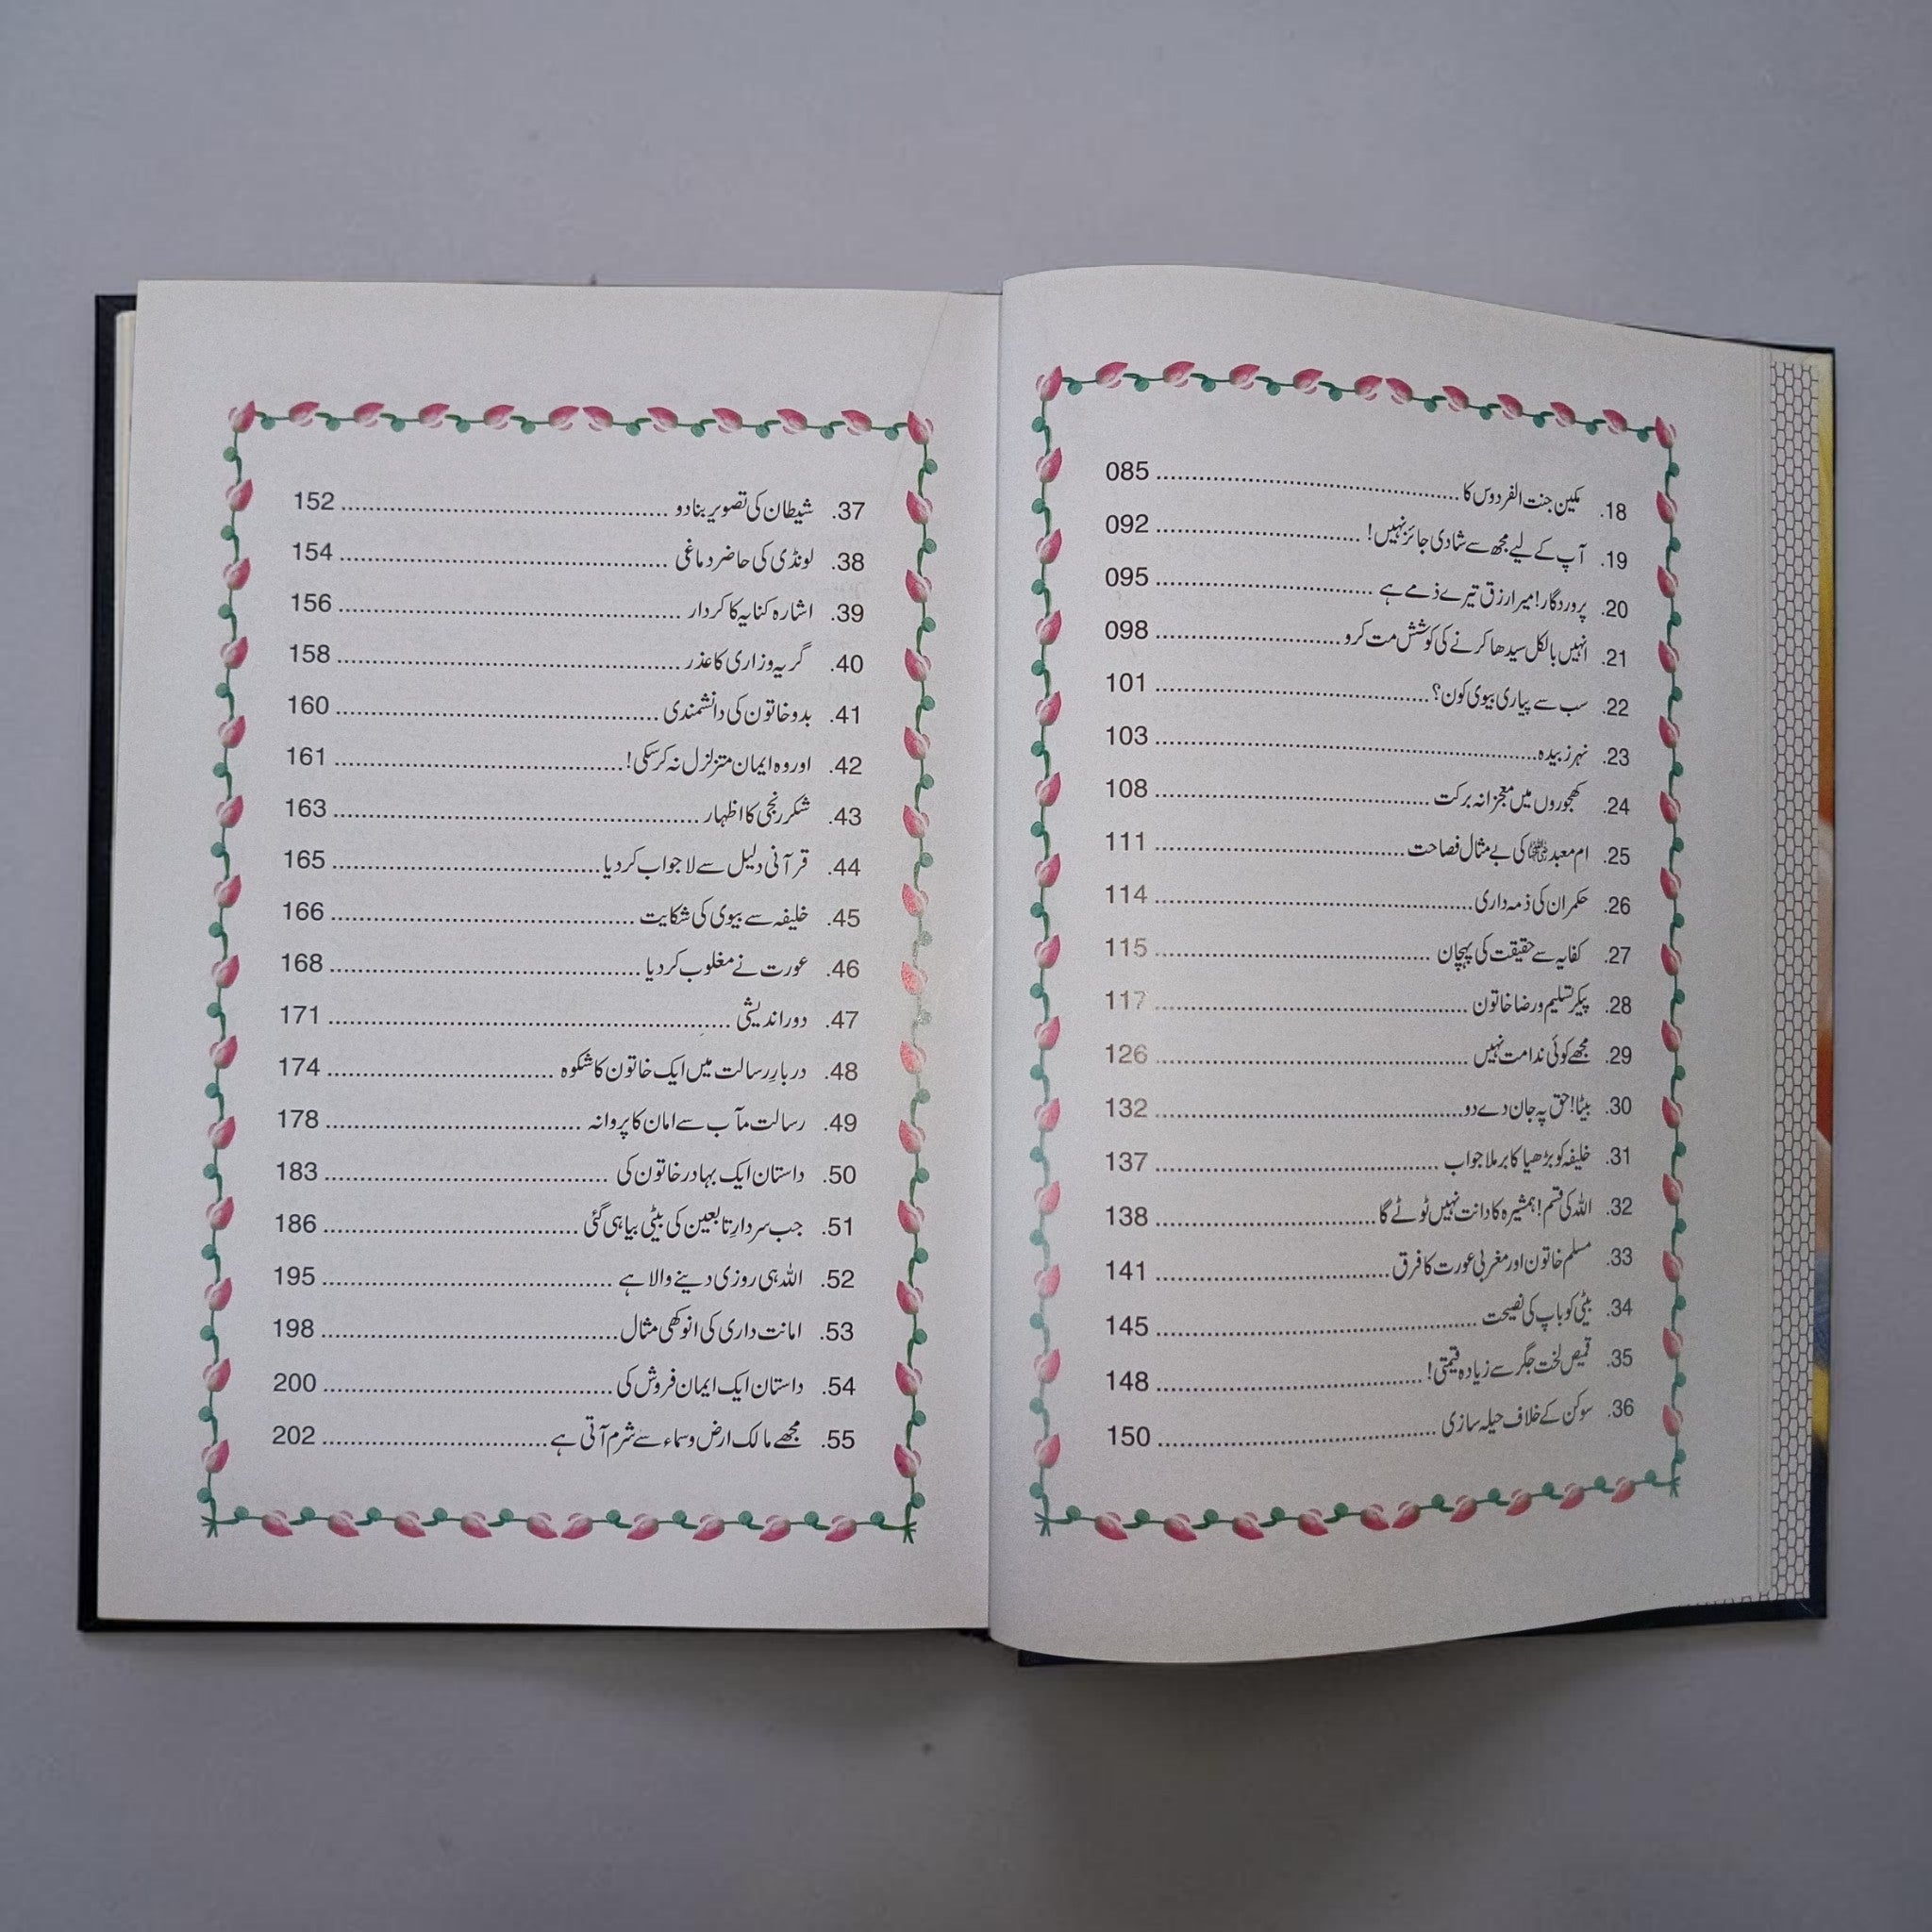 18. مکین جنت الفردوس کا ........ 085
19. آپ کے لیے مجھ سے شادی جائز نہیں! ........ 092
20. پروردگار! میرا رزق تیرے ذمے ہے ........ 095
21. انہیں بالکل سیدھا کرنے کی کوشش مت کرو ........ 098
22. سب سے پیاری بیوی کون؟ ........ 101
23. نہر زبیدہ ........ 103
24. کھجوروں میں معجزانہ برکت ........ 108
25. ام معبد رضی اللہ عنہا کی بے مثال فصاحت ........ 111
26. حکمران کی ذمہ داری ........ 114
27. کفایہ سے حقیقت کی پہچان ........ 115
28. پیکر تسلیم و رضا خاتون ........ 117
29. مجھے کوئی ندامت نہیں ........ 126
30. بیٹا! حق پہ جان دے دو ........ 132
31. خلیفہ کو بڑھیا کا برملا جواب ........ 137
32. اللہ کی قسم! ہمشیرہ کا دانت نہیں ٹوٹے گا ........ 138
33. مسلم خاتون اور مغربی عورت کا فرق ........ 141
34. بیٹی کو باپ کی نصیحت ........ 145
35. قمیص لخت جگر سے زیادہ قیمتی! ........ 148
36. سوکن کے خلاف حیلہ سازی ........ 150
37. شیطان کی تصویر بنا دو ........ 152
38. لونڈی کی حاضر دماغی ........ 154
39. اشارہ کنایہ کا کردار ........ 156
40. گریہ وزاری کا عذر ........ 158
41. بدو خاتون کی دانشمندی ........ 160
42. اور وہ ایمان متزلزل نہ کر سکی! ........ 161
43. شکر رنجی کا اظہار ........ 163
44. قرآنی دلیل سے لاجواب کر دیا ........ 165
45. خلیفہ سے بیوی کی شکایت ........ 166
46. عورت نے مغلوب کر دیا ........ 168
47. دور اندیشی ........ 171
48. دربارِ رسالت میں ایک خاتون کا شکوہ ........ 174
49. رسالت مآب سے امان کا پروانہ ........ 178
50. داستان ایک بہادر خاتون کی ........ 183
51. جب سردارِ تابعین کی بیٹی بیاہی گئی ........ 186
52. اللہ ہی روزی دینے والا ہے ........ 195
53. امانت داری کی انوکھی مثال ........ 198
54. داستان ایک ایمان فروش کی ........ 200
55. مجھے مالک ارض و سماء سے شرم آتی ہے ........ 202